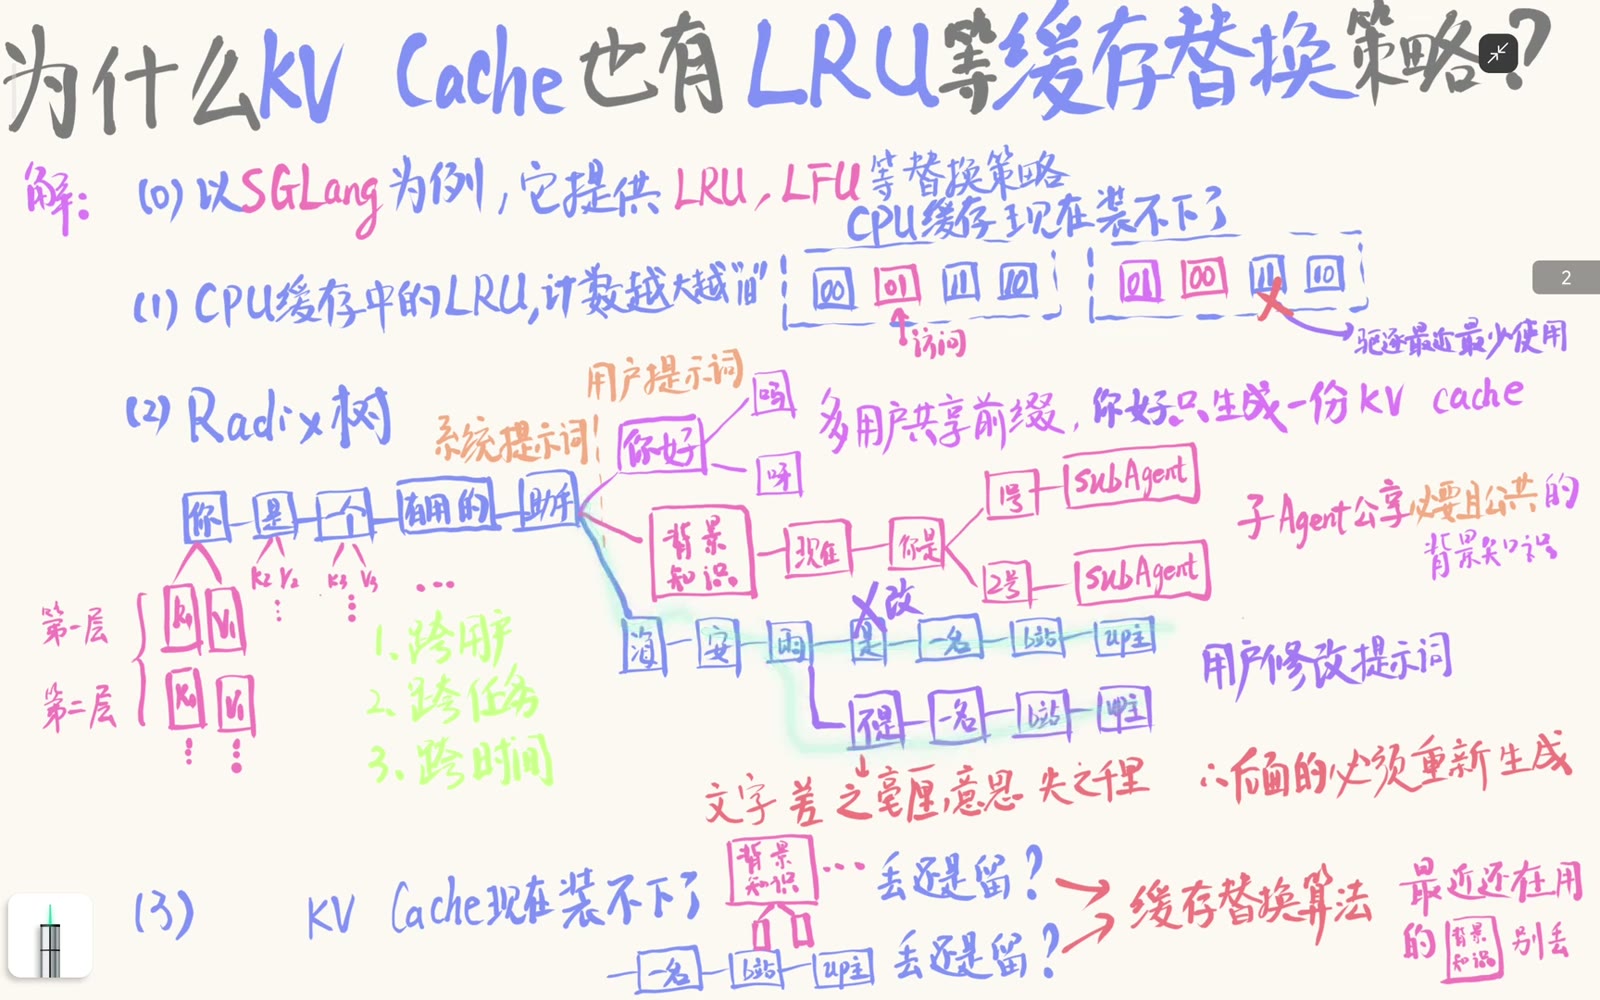 为什么KV Cache也有LRU等缓存替换策略?
2
解: (0) 以SGLang为例,它提供 LRU, LFU等替换策略
CPU缓存现在装不下了
(1) CPU缓存中的LRU,计数越大越"旧"
00 01 11 10
01 00 11 10
访问
驱逐最近最少使用
(2) Radix树
系统提示词
用户提示词
你好
吗
呀
多用户共享前缀,你好只生成一份KV cache
你 是 一个 有用的 助手
背景知识。 现在 你是
1号 subAgent
2号 subAgent
子Agent公享必要且公共的背景知识
K1 V1
K2 V2
K3 V3
...
第一层
第二层
K1 V1
1.跨用户
2.跨任务
3.跨时间
改
是 一名 b站 up主
不是 一名 b站 up主
用户修改提示词
文字差之毫厘,意思失之千里
∴后面的必须重新生成
(3) KV Cache现在装不下了
背景知识 ... 丢还是留?
一名 b站 up主 丢还是留?
缓存替换算法
最近还在用
的背景知识。别丢